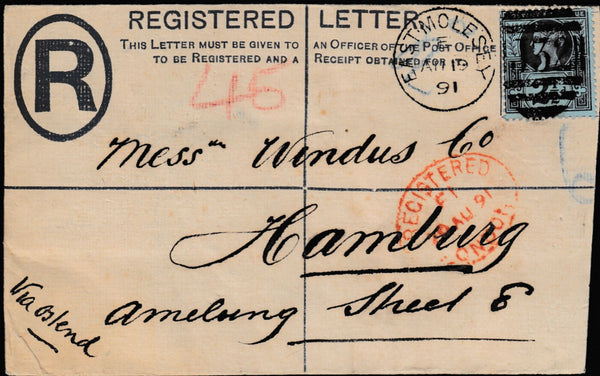 REGISTERED LETTER.
THIS LETTER MUST BE GIVEN TO AN OFFICER OF THE POST OFFICE
TO BE REGISTERED AND A RECEIPT OBTAINED FOR IT.
R
EAST MOLESEY
E
AU 19
91
46
Messrs Windus Co
REGISTERED
AU 91
LONDON
Hamburg
Amelung Street 8
Via Ostend